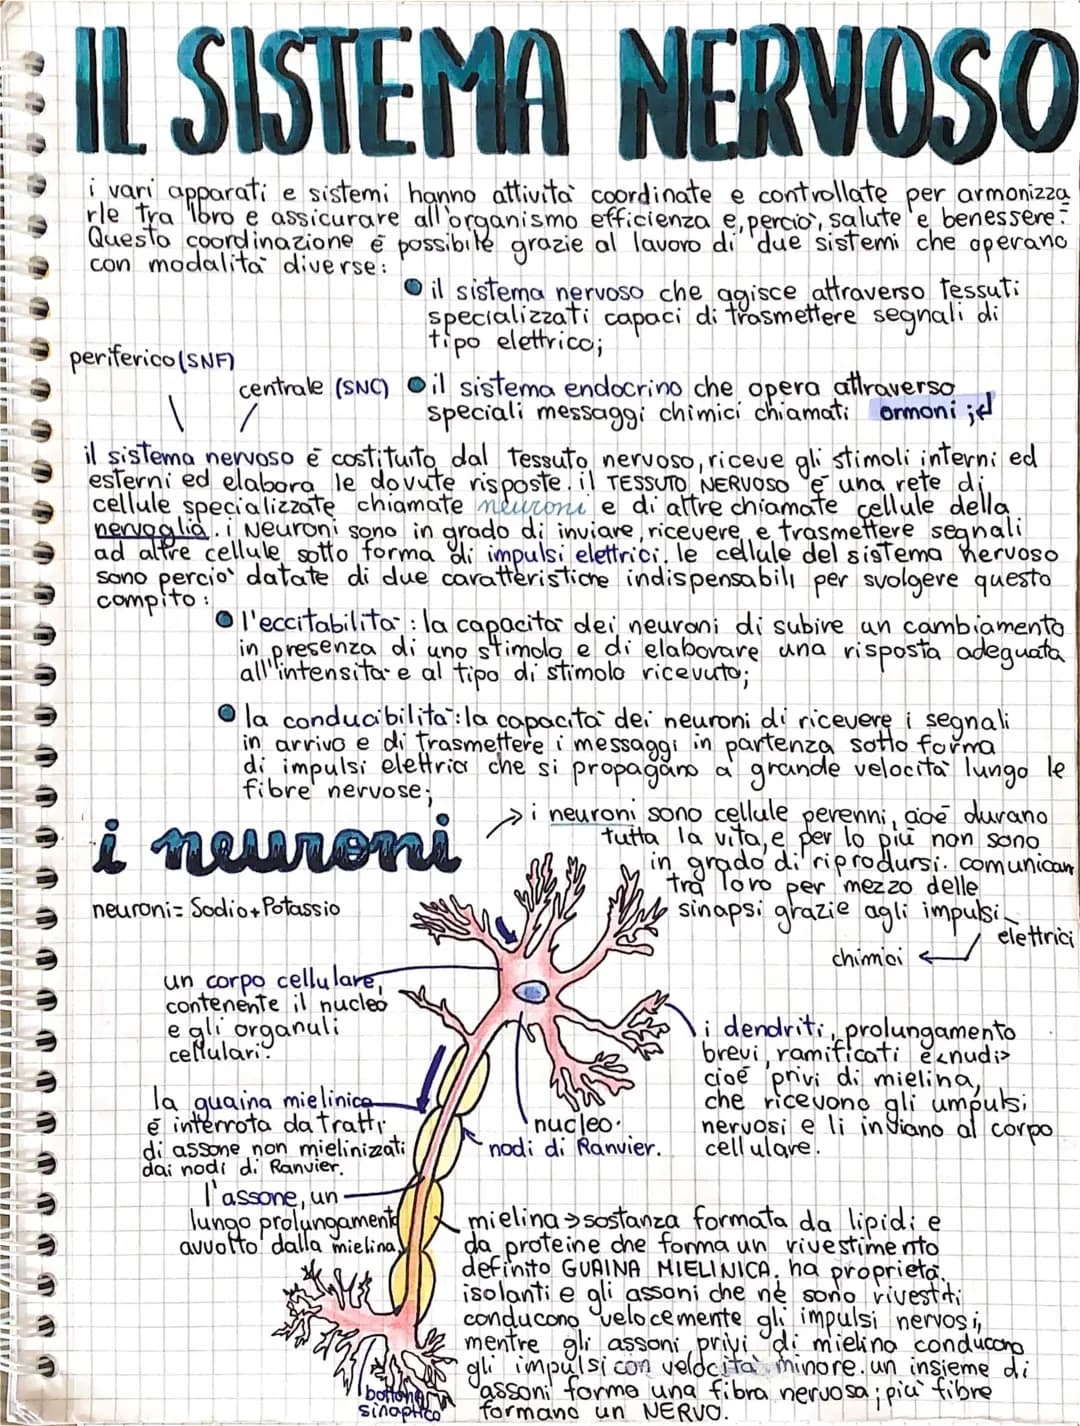 IL SISTEMA NERVOSO
i vari apparati e sistemi hanno attività coordinate e controllate per armonizza
rle tra loro e assicurare all'organismo efficienza e, perciò, salute e benessere.
Questa coordinazione è possibile grazie al lavoro di due sistemi che operano
con modalità diverse:
il sistema nervoso che agisce attraverso tessuti
specializzati capaci di trasmettere segnali di
tipo elettrico;
periferico (SNF)
centrale (SNC)
il sistema endocrino che opera attraverso
speciali messaggi chimici chiamati ormoni;
il sistema nervoso è costituito dal tessuto nervoso, riceve gli stimoli interni ed
esterni ed elabora le dovute risposte. il TESSUTO NERVOSO è una rete di
cellule specializzate chiamate neuroni e di altre chiamate cellule della
nervoglia. i Neuroni sono in grado di inviare, ricevere e trasmettere segnali
ad altre cellule sotto forma di impulsi elettrici. le cellule del sistema nervoso
sono perciò datate di due caratteristiche indispensabili per svolgere questo
compito:
l'eccitabilità: la capacità dei neuroni di subire un cambiamento
in presenza di uno stimolo e di elaborare una risposta adeguata
all'intensità e al tipo di stimolo ricevuto;
la conducibilità: la capacità dei neuroni di ricevere i segnali
in arrivo e di trasmettere i messaggi in partenza sotto forma
di impulsi elettrici che si propagano a grande velocità lungo le
fibre nervose;
i neuroni
→ i neuroni sono cellule perenni, cioè durano
tutta la vita, e per lo più non sono
in grado di riprodursi. comunican
tra loro per mezzo delle
sinapsi grazie agli impulsi
elettrici
chimici
neuroni= Sodio+Potassio
un corpo cellulare,
contenente il nucleo
e gli organuli
cellulari.
la guaina mielinica
è interrota da tratti
di assone non mielinizzati
dai nodi di Ranvier.
l'assone, un
lungo prolungamento
avvolto dalla mielina
nucleo.
nodi di Ranvier.
i dendriti, prolungamento
brevi, ramificati e <nudi>
cioè privi di mielina,
che ricevono gli umpulsi
nervosi e li inviano al corpo
cellulare.
mielina → sostanza formata da lipidi e
da proteine che forma un rivestimento
definito GUAINA MIELINICA. ha proprietà
isolanti e gli assoni che nè sono rivestiti
conducono velocemente gli impulsi nervosi,
mentre gli assoni privi di mielina conducono
gli impulsi con velocità minore. un insieme di
assoni forma una fibra nervosa; più fibre
formano un NERVO.
bottone
sinaptico